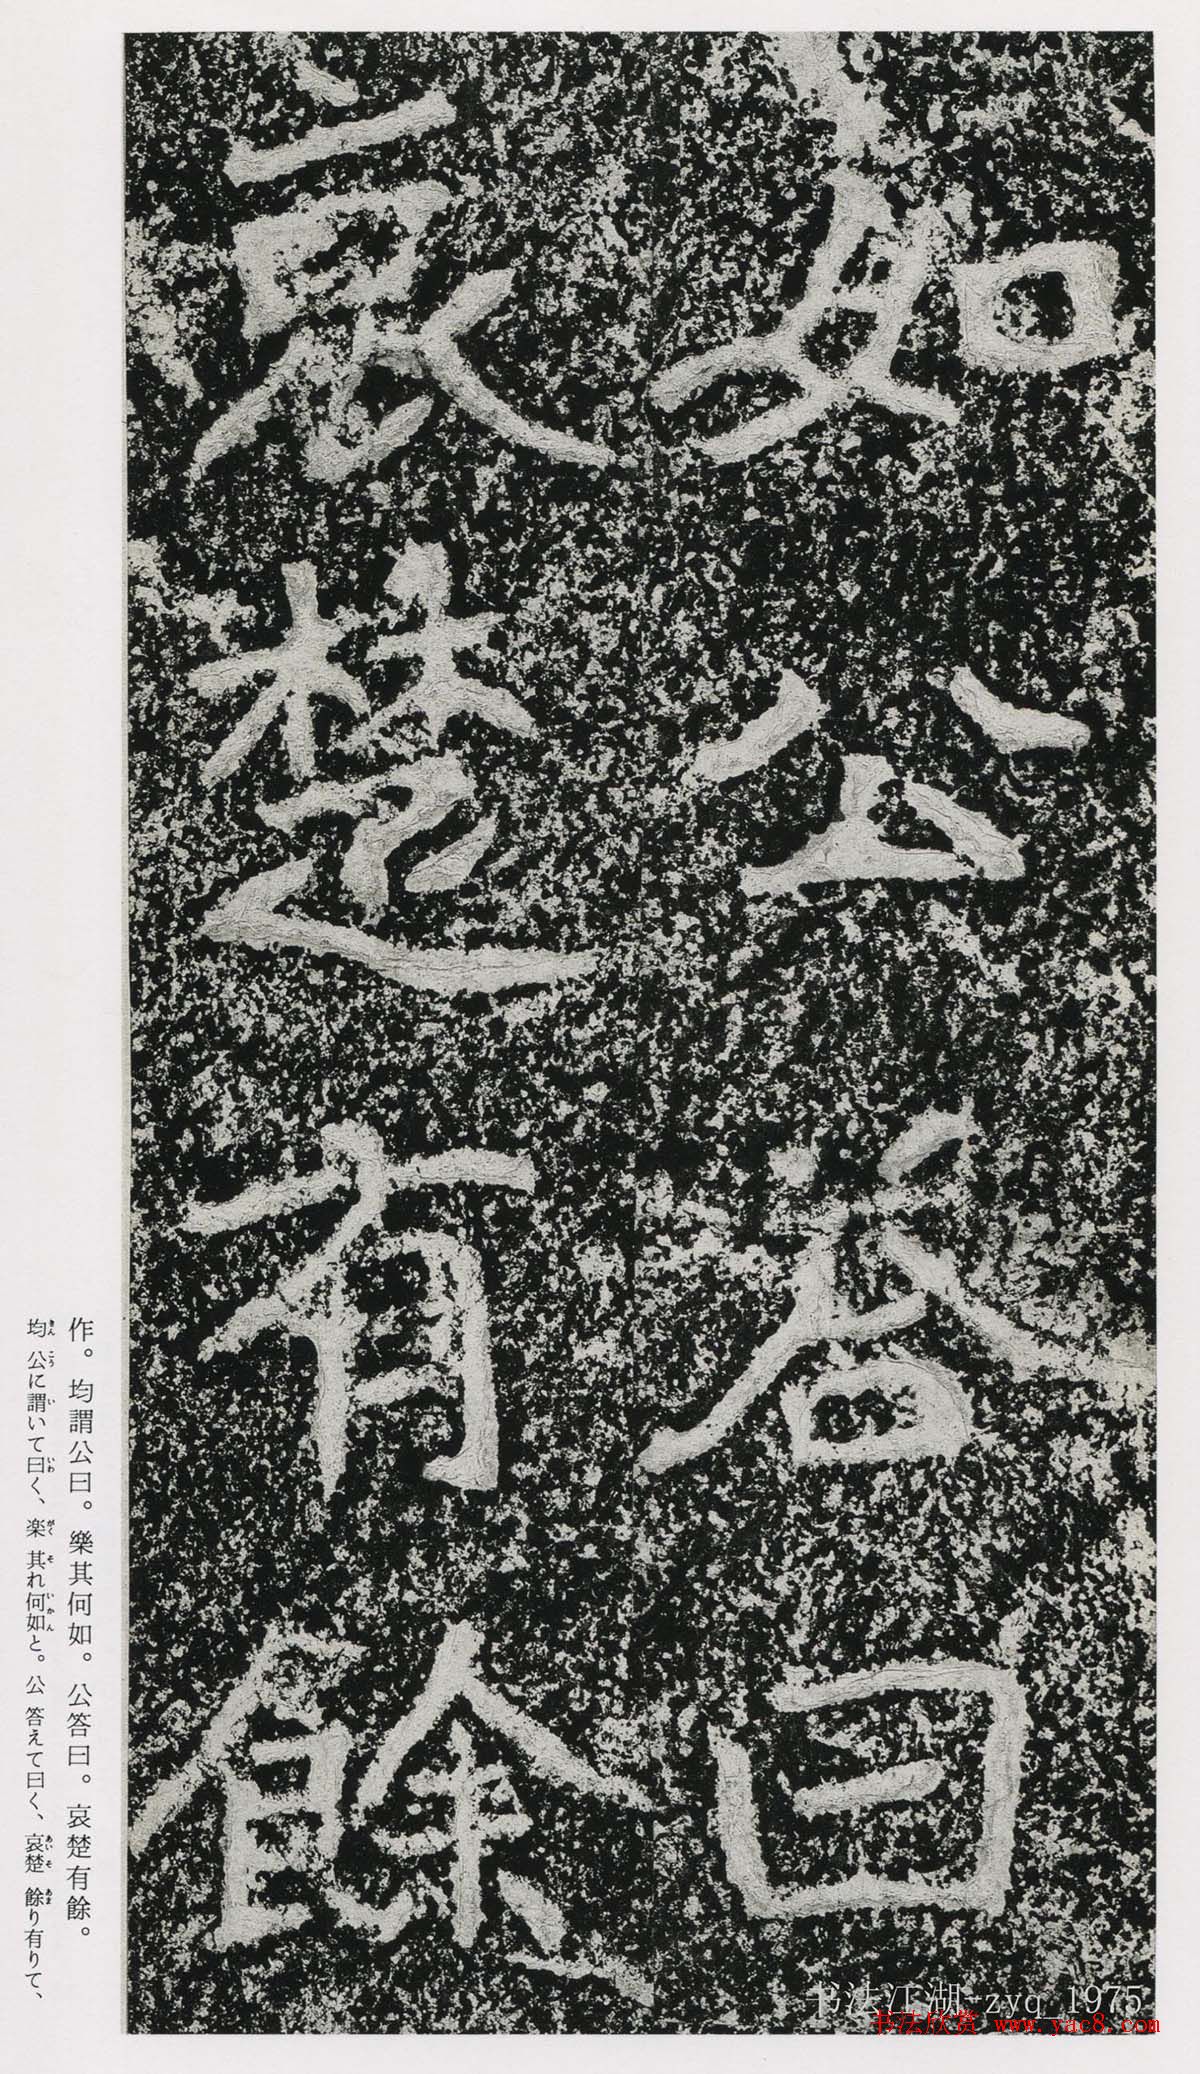 如公答曰
哀楚有餘
作。均謂公曰。樂其何如。公答曰。哀楚有餘。
均公に謂いて曰く、楽其れ何如と。公答えて曰く、哀楚餘り有りて、
书法江湖-zyq_1975
书法欣赏 www.yac8.com